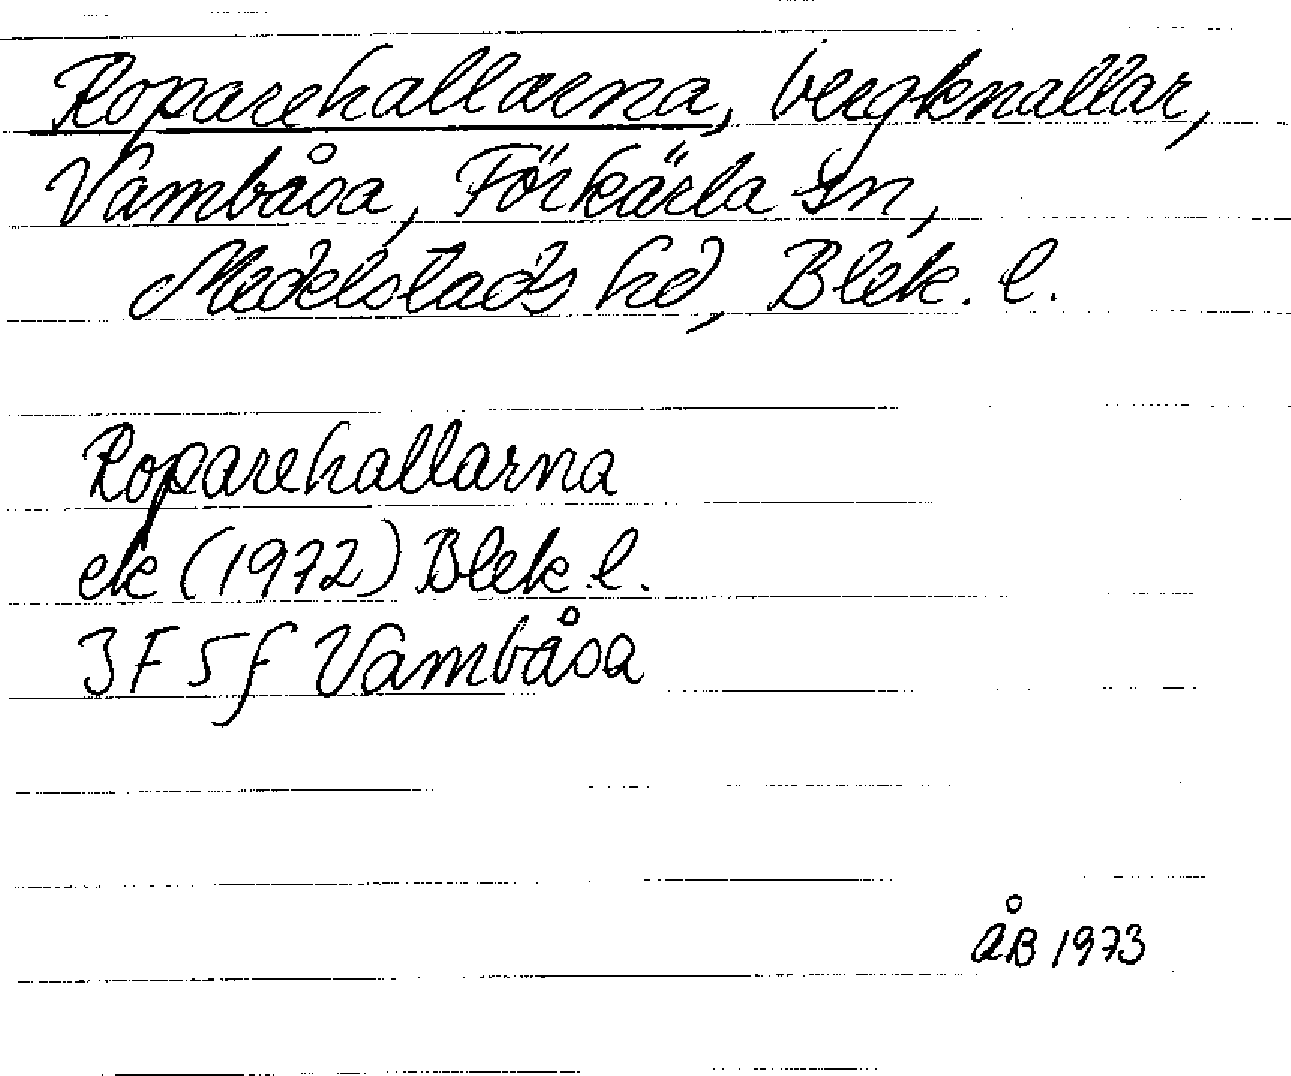 Roparehallarna, bergknallar,
Vambåsa, Förkärla sn,
Medelstads hd, Blek. l.
Roparehallarna
ek (1972) Blek. l.
3F 5f Vambåsa
ÅB 1973